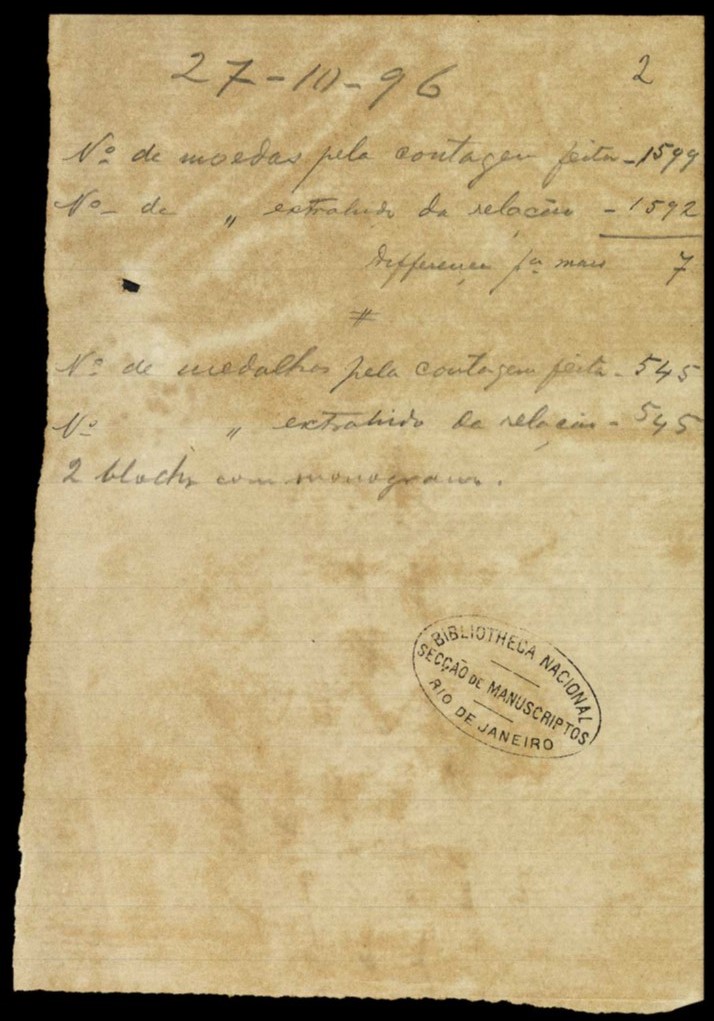 27-III-96
2
Nº de moedas pela contagem feita - 1599
Nº de " extrahido da relação - 1592
Differença pa mais 7
#
Nº de medalhas pela contagem feita - 545
Nº " extrahido da relação - 545
2 blocks com monogramma.
BIBLIOTHECA NACIONAL
SECÇÃO DE MANUSCRIPTOS
RIO DE JANEIRO